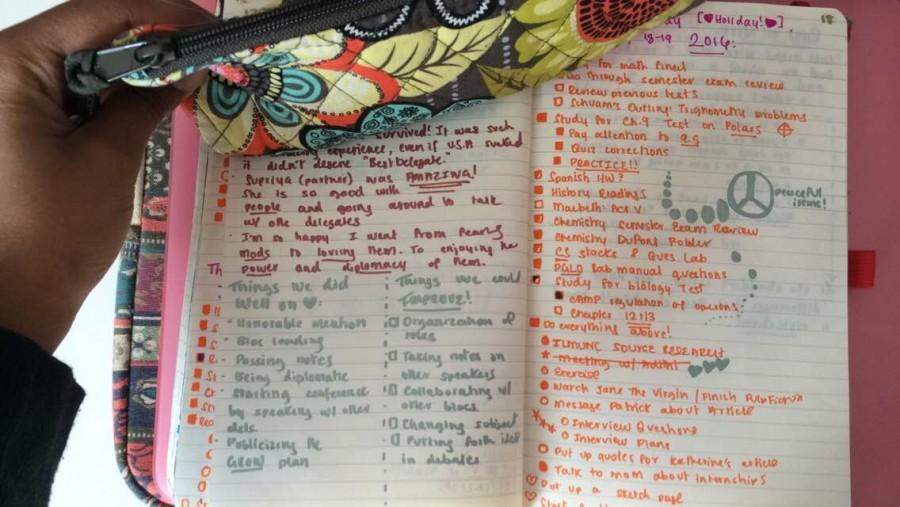 survived! It was such
experience, even if USA sucked
it didn't deserve "Best Delegate."
Supriya (partner) was AMAZING!
She is so good with
people and going around to talk
w/ other delegates
I'm so happy I went from fearing
mods to loving them. To enjoying the
power and diplomacy of them.
Th
Things we did
well on
- Honorable mention
- Bloc leading
- Passing notes
- Being diplomatic
- Starting conference
by speaking w/ other
dels.
- Publicizing the
GROW plan
Things we could
Improve!
Organization of
roles
Taking notes on
other speakers
Collaborating w/
other blocs
Changing subject
Putting forth idea
in debates
day [Holiday!]
18
18-19 2016:
for math final
through semester exam review
Review previous tests
Schaum's Outline Trigonometry problems
Study for Ch.9 Test on Polars
Pay attention to 9.5
Quiz corrections
PRACTICE!!
Spanish HW?
History Readings
Macbeth: Act V
Chemistry semester Exam Review
Chemistry DuPont Folder
CS Stacks & Ques Lab
PGLO lab manual questions
Study for biology Test
CAMP regulation of operons
Chapter 12+13
Do everything above!
peaceful
items!
SOURCE RESEARCH
Meeting w/ Aditi
Exercise
Watch Jane The Virgin / Finish Pulp Fiction
Message Patrick about Article
Interview Questions
Interview Plans
Put up quotes for Katherine's article
Talk to mom about internships
Put up a sketch page
Start